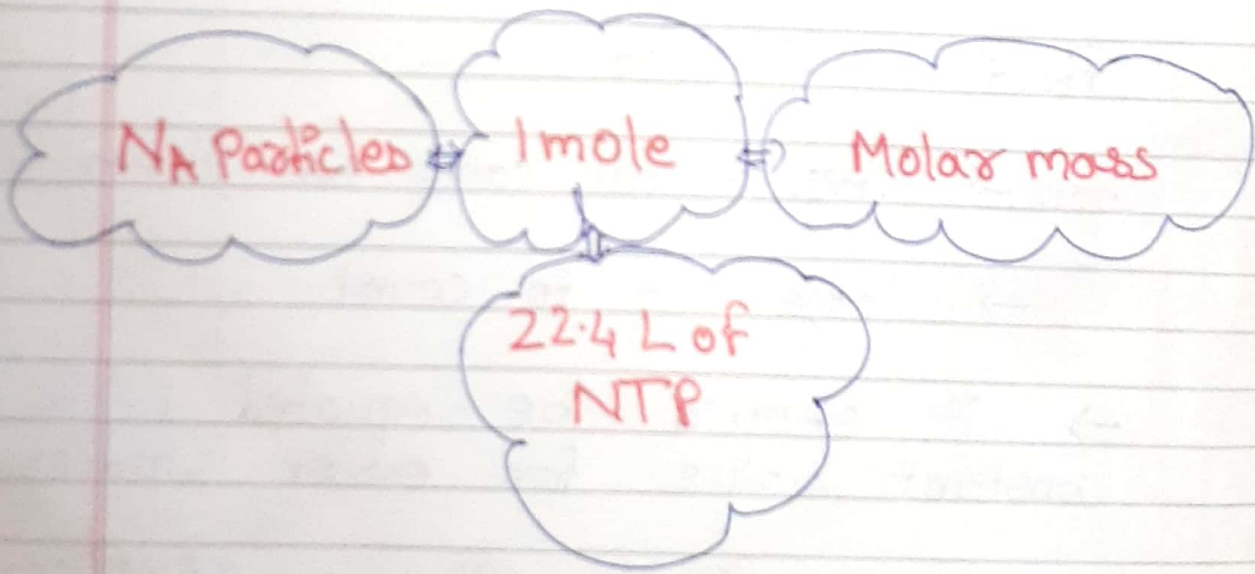 NA Particles ⇔ 1 mole ⇔ Molar mass
⇕
22.4 L of
NTP